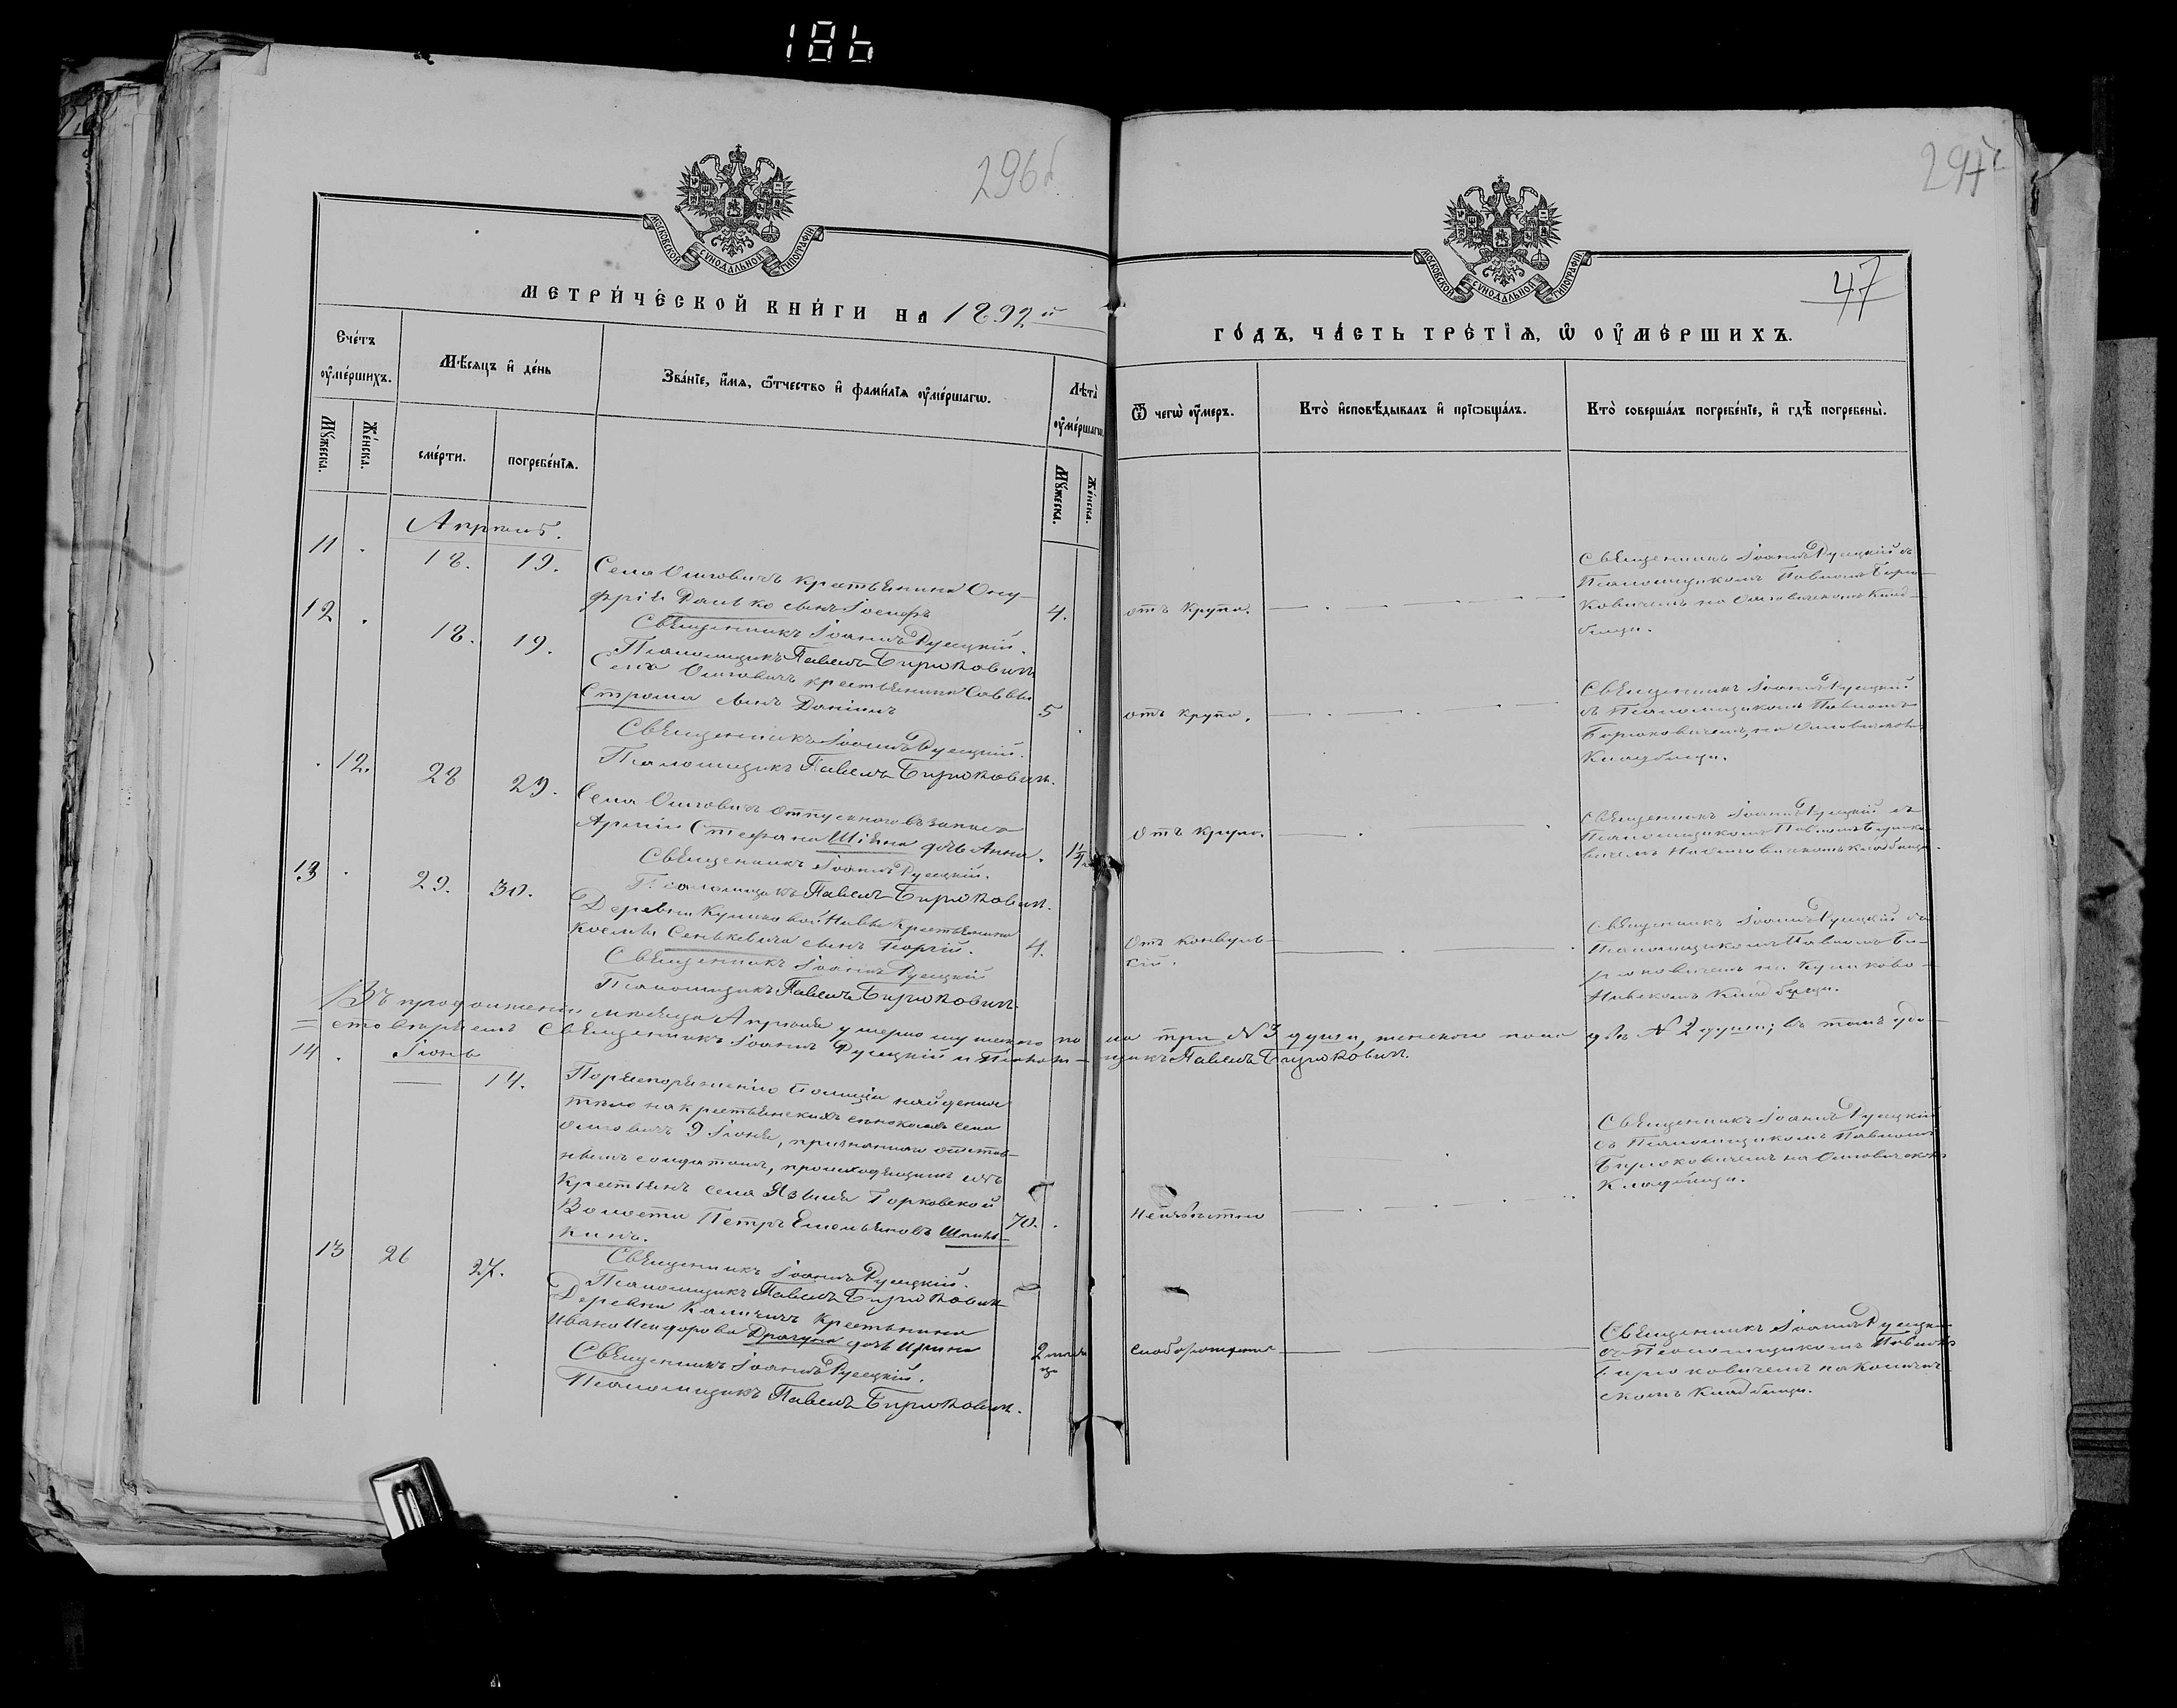 186
296б
МОСКОВСКОЙ СУНОДАЛЬНОЙ ТИПОГРАФІИ
МЕТРИ́ЧЕСКОЙ КНИ́ГИ НА 1892й
Сче́тъ оу҆ме́ршихъ.
Му́жеска.
Же́нска.
Мѣ́сяцъ и҆ де́нь
сме́рти.
погребе́нїѧ.
Зва́нїе, и҆́мѧ, ѻ҆́тчество и҆ фами́лїѧ оу҆ме́ршагѡ.
Лѣта̀ оу҆ме́ршагѡ.
Му́жеска.
Же́нска.
Апрѣль.
11 . 18. 19. Села Ольговичъ крестьянина Ону-
фрія Данько сынъ Іосифъ 4.
Священникъ Іоаннъ Русецкій.
Псаломщикъ Павелъ Бирюковичъ
12 . 18. 19. Села Ольговичъ крестьянина Саввы
Строма сынъ Даніилъ 5
Священникъ Іоаннъ Русецкій.
Псаломщикъ Павелъ Бирюковичъ.
. 12. 28 29. Села Ольговичъ отпускного въ запасъ
Арміи Стефана Шіяна дочь Анна.
Священникъ Іоаннъ Русецкій.
Псаломщикъ Павелъ Бирюковичъ.
13 . 29. 30. Деревни Куликовой Нивы крестьянина
Космы Сенькевича сынъ Георгій. 4.
Священникъ Іоаннъ Русецкій
Псаломщикъ Павелъ Бирюковичъ.
Въ продолженіи мѣсяца Апрѣля умерло мужского пола три № 3 души, женского пола двѣ № 2 души; въ томъ удо-
= стовѣряемъ Священникъ Іоаннъ Русецкій и Псаломщикъ Павелъ Бирюковичъ.
14 . Іюнь
— 14. По распоряженію Полиціи найденное
тѣло на крестьянскихъ сѣнокосахъ села
Ольговичъ 9 Іюня, признанного отстав-
нымъ солдатомъ, происходящимъ изъ
крестьянъ села Язвиля Горковской
Волости Петръ Емельяновъ Шпинь-
кинъ. 70. .
Священникъ Іоаннъ Русецкій.
Псаломщикъ Павелъ Бирюковичъ
13 26 27. Деревни Каличичъ крестьянина
Ивана Исидорова Драгуна дочь Ирина 2 мѣсяца
Священникъ Іоаннъ Русецкій.
Псаломщикъ Павелъ Бирюковичъ.
47
МОСКОВСКОЙ СУНОДАЛЬНОЙ ТИПОГРАФІИ
ГО́ДЪ, ЧА́СТЬ ТРЕ́ТЇѦ, Ѡ҆ ОУ҆МЕ́РШИХЪ.
Ѿ чегѡ̀ оу҆́меръ.
Кто̀ и҆сповѣ́дывалъ и҆ прїѡбща́лъ.
Кто̀ соверша́лъ погребе́нїе, и҆ гдѣ̀ погребены̀.
отъ крупа.
Священникъ Іоаннъ Русецкій съ
Псаломщикомъ Павломъ Бирю-
ковичемъ на Ольговичскомъ клад-
бищи.
отъ крупа.
Священникъ Іоаннъ Русецкій
съ Псаломщикомъ Павломъ
Бирюковичемъ, на Ольговичскомъ
Кладбищи.
отъ крупа.
Священникъ Іоаннъ Русецкій съ
Псаломщикомъ Павломъ Бирюко-
вичемъ на Ольговичскомъ кладбищи.
отъ конвуль-
сій.
Священникъ Іоаннъ Русецкій съ
Псаломщикомъ Павломъ Би-
рюковичемъ на Куликово-
Нивскомъ кладбищи.
Неизвѣстно
Священникъ Іоаннъ Русецкій
съ Псаломщикомъ Павломъ
Бирюковичемъ на Ольговичскомъ
Кладбищи.
Священникъ Іоаннъ Русецкій
съ Псаломщикомъ Павломъ
Бирюковичемъ на Каличич-
скомъ кладбищи.